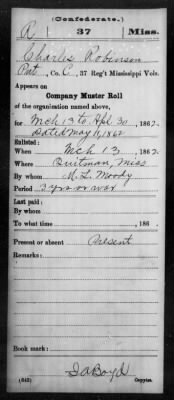 (Confederate.)
R 37 Miss.
Charles Robinson
Pvt, Co. C, 37 Reg't Mississippi Vols.
Appears on
Company Muster Roll
of the organization named above,
for Mch 13 to Apl 30, 1862.
Dated May 1, 1862
Enlisted:
When Mch 13, 1862.
Where Quitman, Miss
By whom M. L. Moody
Period 3 yrs or war
Last paid:
By whom
To what time , 186 .
Present or absent Present
Remarks:
Book mark:
(642) Copyist.